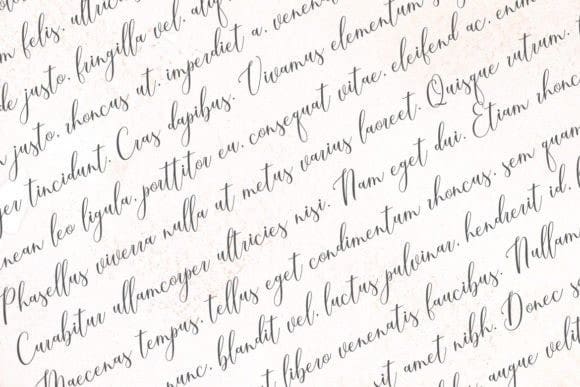 m felis, ultric
de justo, fringilla vel, aliq
n justo, rhoncus ut, imperdiet a, venena
ger tincidunt. Cras dapibus. Vivamus elementum s
nean leo ligula, porttitor eu, consequat vitae, eleifend ac, enim
Phasellus viverra nulla ut metus varius laoreet. Quisque rutrum.
Curabitur ullamcorper ultricies nisi. Nam eget dui. Etiam rhonc
Maecenas tempus, tellus eget condimentum rhoncus, sem quam
nunc, blandit vel, luctus pulvinar, hendrerit id, l
t libero venenatis faucibus. Nullam
it amet nibh. Donec s
augue velit